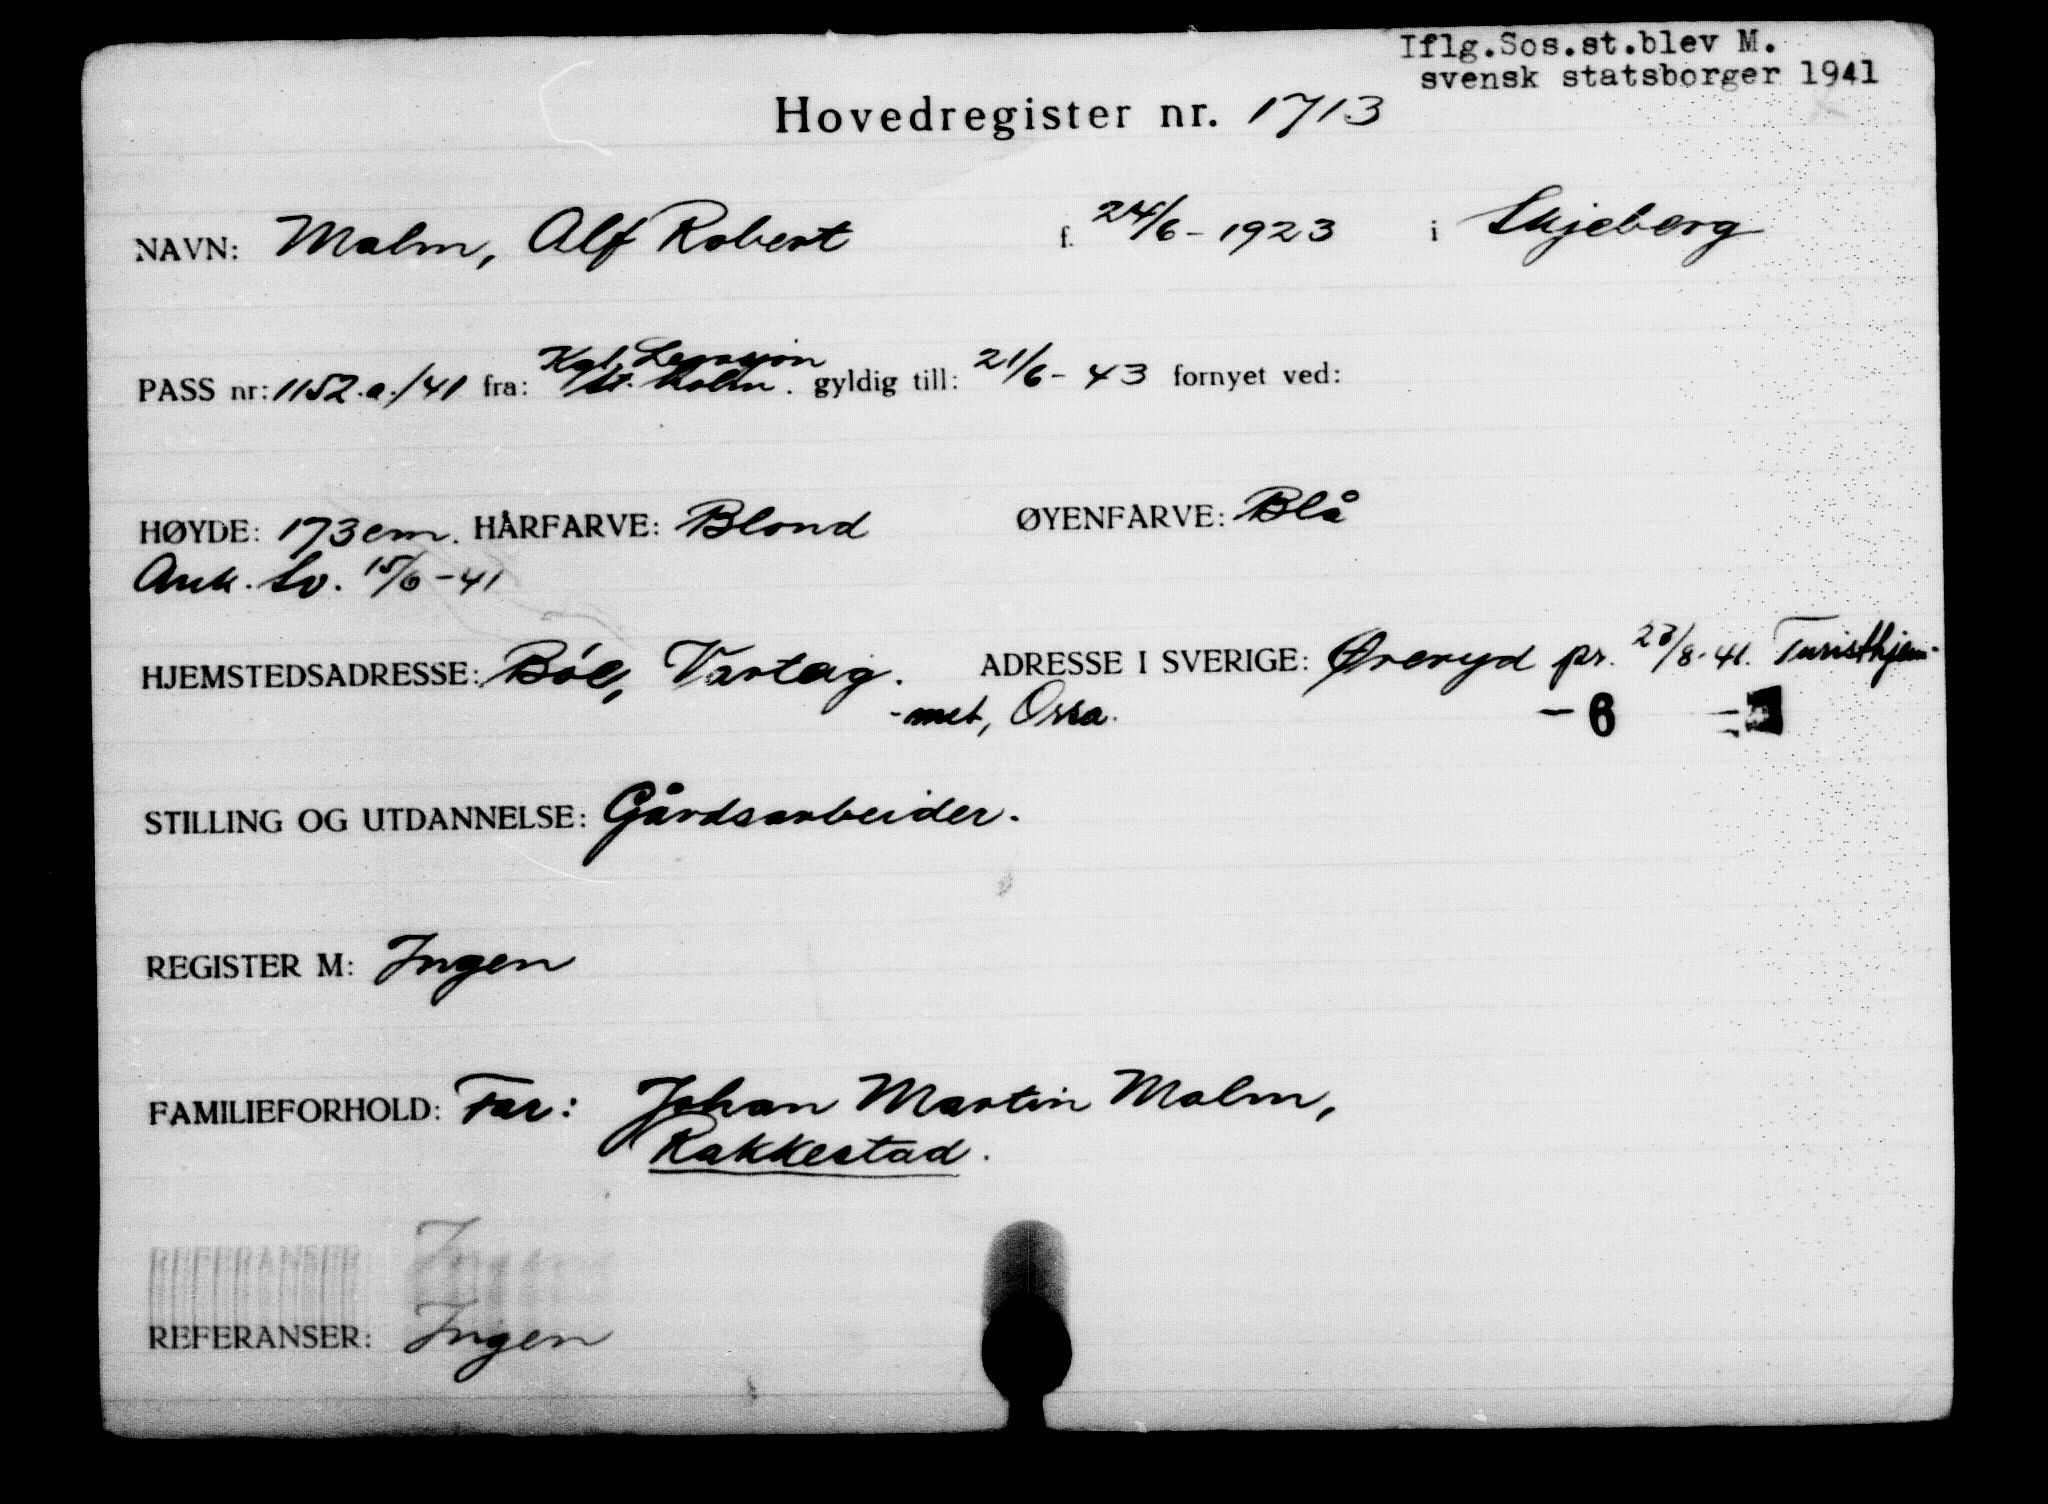 Iflg.Sos.st.blev M.
svensk statsborger 1941
Hovedregister nr. 1713
NAVN: Malm, Alf Robert f. 24/6-1923 i Skjeberg
PASS nr: 1152.a./41 fra: Kgl. Legasjon St.holm. gyldig till: 21/6-43 fornyet ved:
HØYDE: 173 cm. HÅRFARVE: Blond ØYENFARVE: Blå
Ank. Sv. 15/6-41
HJEMSTEDSADRESSE: Böe, Varteig. ADRESSE I SVERIGE: Øreryd pr. 23/8-41. Turisthjem-
-met, Orsa. - 6
STILLING OG UTDANNELSE: Gårdsarbeider.
REGISTER M: Ingen
FAMILIEFORHOLD: Far: Johan Martin Malm,
Rakkestad.
REFERANSER: Ingen